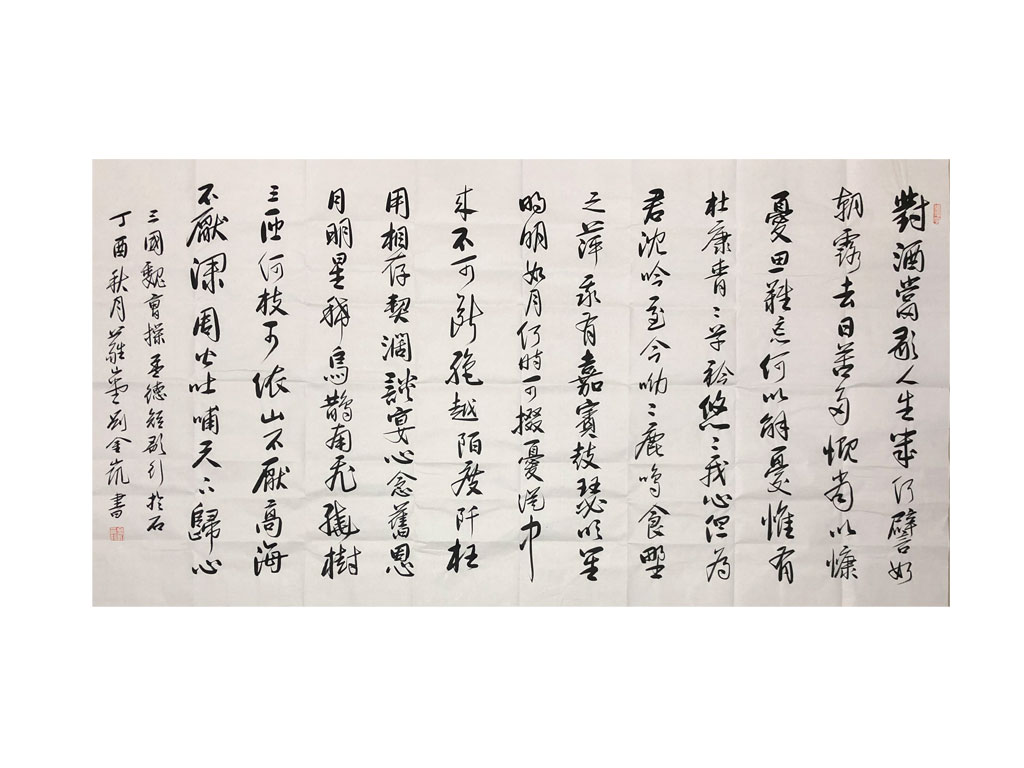 對酒當歌人生幾何譬如
朝露去日苦多慨當以慷
憂思難忘何以解憂惟有
杜康青〻子衿悠〻我心但為
君沈吟至今呦〻鹿鳴食野
之萍我有嘉賓鼓瑟吹笙
明明如月何時可掇憂從中
來不可斷絕越陌度阡枉
用相存契闊談宴心念舊恩
月明星稀烏鵲南飛繞樹
三匝何枝可依山不厭高海
不厭深周公吐哺天下歸心
三國魏曹操孟德短歌行於石
丁酉秋月劉金凱書